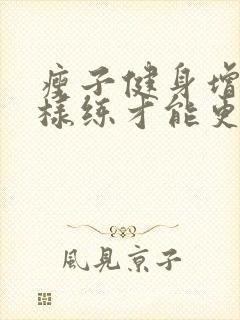 瘦子健身增
样练才能更
風見京子